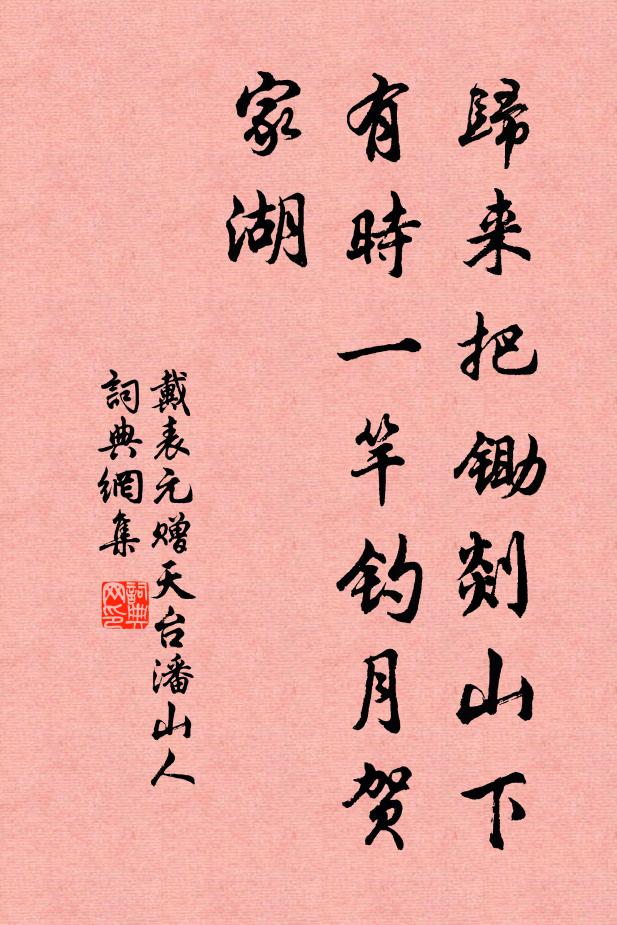 歸来把鋤剡山下
有時一竿钓月贺
家湖
戴表元赠天台潘山人
詞典網集
詞典网印